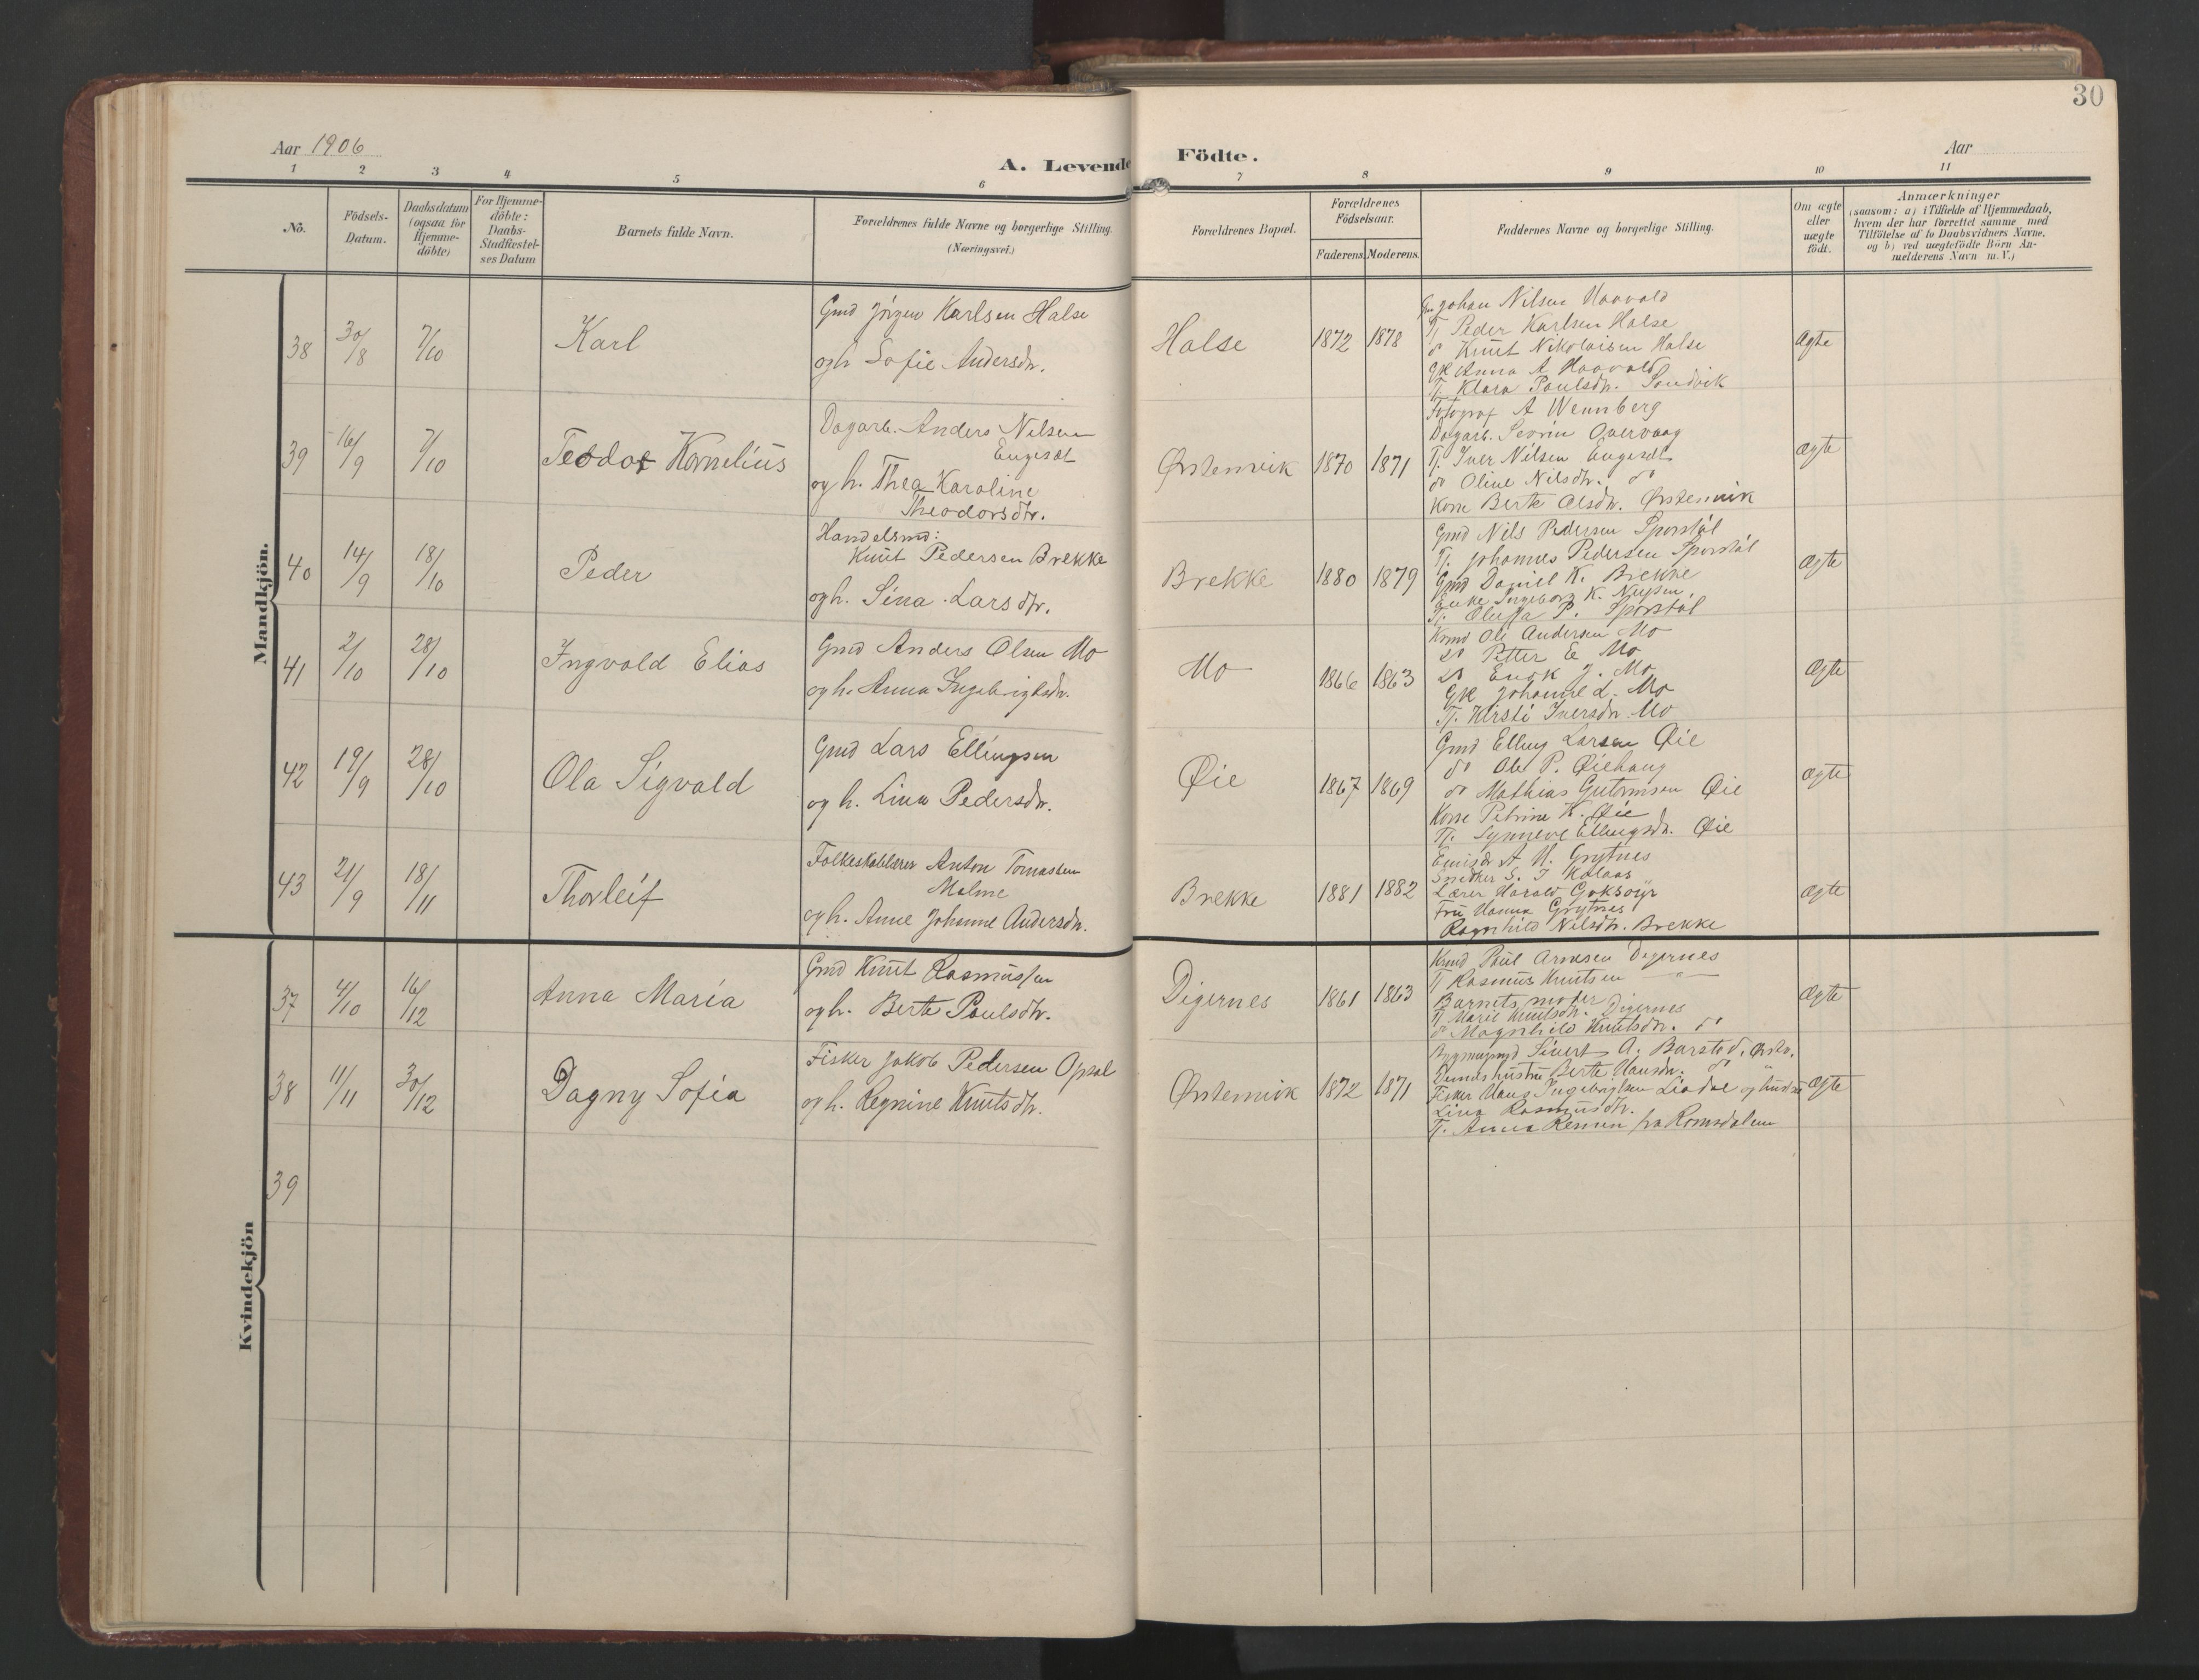 30
Aar 1906
A. Levende Födte.
Aar
1 2 3 4 5 6 7 8 9 10 11
No.
Födsels-
Datum.
Daabsdatum
(ogsaa for
Hjemme-
döbte)
For Hjemme-
döbte:
Daabs-
Stadfæstel-
ses Datum
Barnets fulde Navn.
Forældrenes fulde Navne og borgerlige Stilling.
(Næringsvei.)
Forældrenes Bopæl.
Forældrenes
Födselsaar.
Faderens. Moderens.
Faddernes Navne og borgerlige Stilling.
Om ægte
eller
uægte
födt.
Anmærkninger
(saasom: a) i Tilfælde af Hjemmedaab,
hvem der har forrettet samme med
Tilföielse af to Daabsvidners Navne,
og b) ved uægtefödte Börn An-
melderens Navn m. V.)
Mandkjön.
38 30/8 7/10 Karl
Gmd Jörgen Karlsen Halse
og h. Sofie Andersdtr.
Halse 1872 1878
Johan Nilsen Haavald
Tj. Peder Karlsen Halse
do Knut Nikolaisen Halse
Gk Anna A Haavald
Tj. Klara Paulsdtr. Sandvik
Ægte
39 16/9 7/10 Teodor Kornelius
Dagarb. Anders Nilsen
Engeset
og h. Thea Karoline
Theodorsdtr.
Ørstenvik 1870 1871
Fotograf A Wennberg
Dagarb. Sevrin Overvaag
Tj. Iver Nilsen Engeset
do Oline Nilsdtr. do
Kone Berte Olsdtr. Ørstenvik
Ægte
40 14/9 18/10 Peder
Handelsmd:
Knut Pedersen Brekke
og h. Sina Larsdtr.
Brekke 1880 1879
Gmd Nils Pedersen Sporstøl
Tj. Johannes Pedersen Sporstøl
Gmd Daniel K. Brekke
Enke Ingeborg K.
Tj. Oluffa P. Sporstøl
Ægte
41 2/10 28/10 Ingvald Elias
Gmd Anders Olsen Mo
og h. Anna Ingebrigtsdtr.
Mo 1866 1863
Kmd Ole Andersen Mo
do Petter E Mo
do Enok J. Mo
Gk Johanne L. Mo
Tj. Kirsti Iversdtr. Mo
Ægte
42 19/9 28/10 Ola Sigvald
Gmd Lars Ellingsen
og h. Lina Pedersdtr.
Øie 1867 1869
Gmd Elling Larsen Øie
do Ole P. Øiehaug
do Mathias Guttormsen Øie
Kone Petrine K. Øie
Tj. Synneve Ellingsdtr. Øie
Ægte
43 21/9 18/11 Thorleif
Folkeskolelærer Anton Tomassen
Malme
og h. Anne Johanne Andersdtr.
Brekke 1881 1882
A. H. Grytnes
Snedker S. J Kalaas
Lærer Harald Goksøyr
Fru Hanna Grytnes
Ragnhild Nilsdtr. Brekke
Ægte
Kvindekjön
37 4/10 16/12 Anna Maria
Gmd Knut Rasmussen
og h. Berte Paulsdtr.
Digernes 1861 1863
Kmd Paul Arnesen Digernes
Tj Rasmus Knutsen — " —
Barnets moder
Tj Marie Knutsdtr. Digernes
do Magnhild Knutsdtr. do
Ægte
38 11/11 30/12 Dagny Sofia
Fisker Jakob Pedersen Opsal
og h. Regnine Knutsdtr.
Ørstenvik 1872 1871
Sivert A. Barstad, Ørstv.
hustru Berte Hansdtr. do
Fisker Hans Ingebrigtsen Liadal og hustru
Lina Rasmusdtr.
Tj. Anna fra Romsdalen
Ægte
39